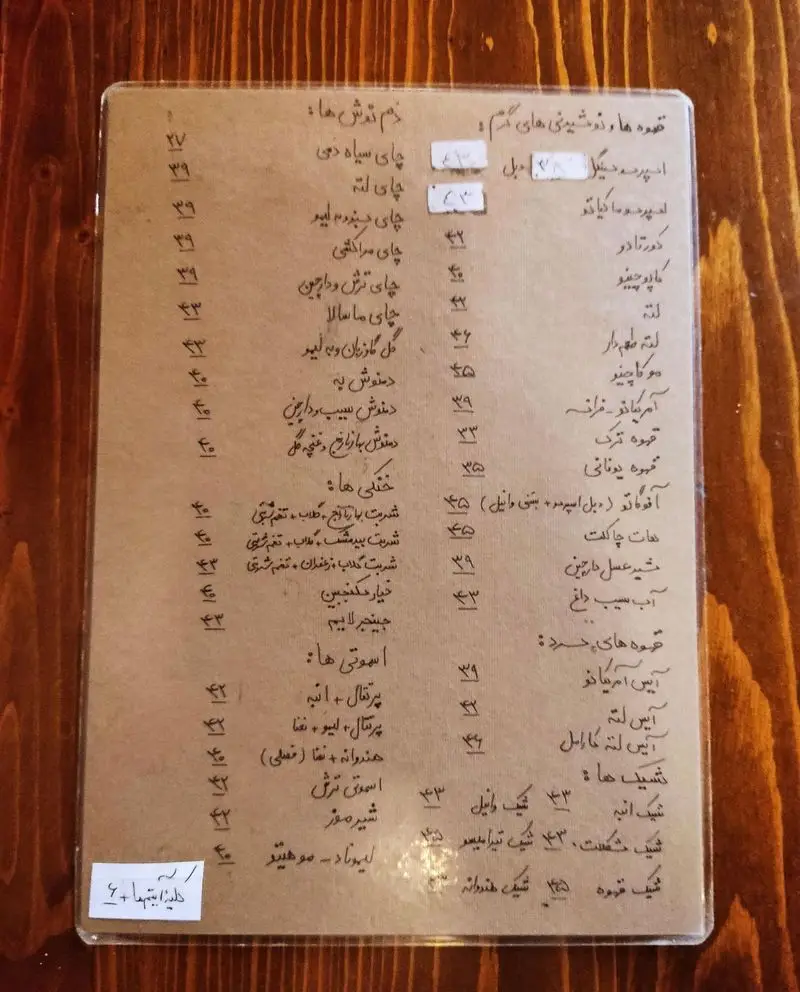 قهوه ها و نوشیدنی های گرم:
اسپرسو سینگل ۳۸ دبل ۴۳
اسپرسو ماکیاتو ۴۳
کورتادو ۴۲
کاپوچینو ۴۰
لته ۴۲
لته طعم دار ۴۶
موکاچینو ۴۵
آمریکانو - فرانسه ۳۹
قهوه ترک ۳۳
قهوه یونانی ۳۵
آفوگاتو (دبل اسپرسو + بستنی وانیل) ۴۵
هات چاکلت ۴۵
شیر عسل دارچین ۳۹
آب سیب داغ ۴۳
قهوه های سرد:
آیس آمریکانو ۳۹
آیس لته ۴۲
آیس لته کارامل ۴۶
شیک ها:
شیک انبه ۴۳ شیک وانیل ۴۳
شیک شکلات ۴۳ شیک تیرامیسو ۴۵
شیک قهوه ۴۵ شیک هندوانه
دم نوش ها:
چای سیاه دمی ۳۷
چای لته ۳۹
چای سبز و به لیمو ۳۹
چای مراکشی ۳۹
چای ترش و دارچین ۳۹
چای ماسالا ۴۳
گل گاوزبان و به لیمو ۴۳
دمنوش به ۴۰
دمنوش سیب و دارچین ۴۰
دمنوش بهارنارنج و غنچه گل ۴۰
خنکی ها:
شربت بهارنارنج + گلاب + تخم شربتی ۴۰
شربت بیدمشک + گلاب + تخم شربتی ۴۰
شربت گلاب + زعفران + تخم شربتی ۴۳
خیار سکنجبین ۴۰
جینجر لایم ۴۳
اسموتی ها:
پرتقال + انبه ۴۲
پرتقال + لیمو + نعنا ۴۲
هندوانه + نعنا (فصلی) ۴۰
اسموتی ترش ۴۲
شیر موز ۴۲
لیموناد - موهیتو ۴۰
کلیه آیتمها + ۶